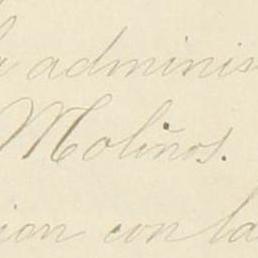 a adminis
Moliños.
ion con la